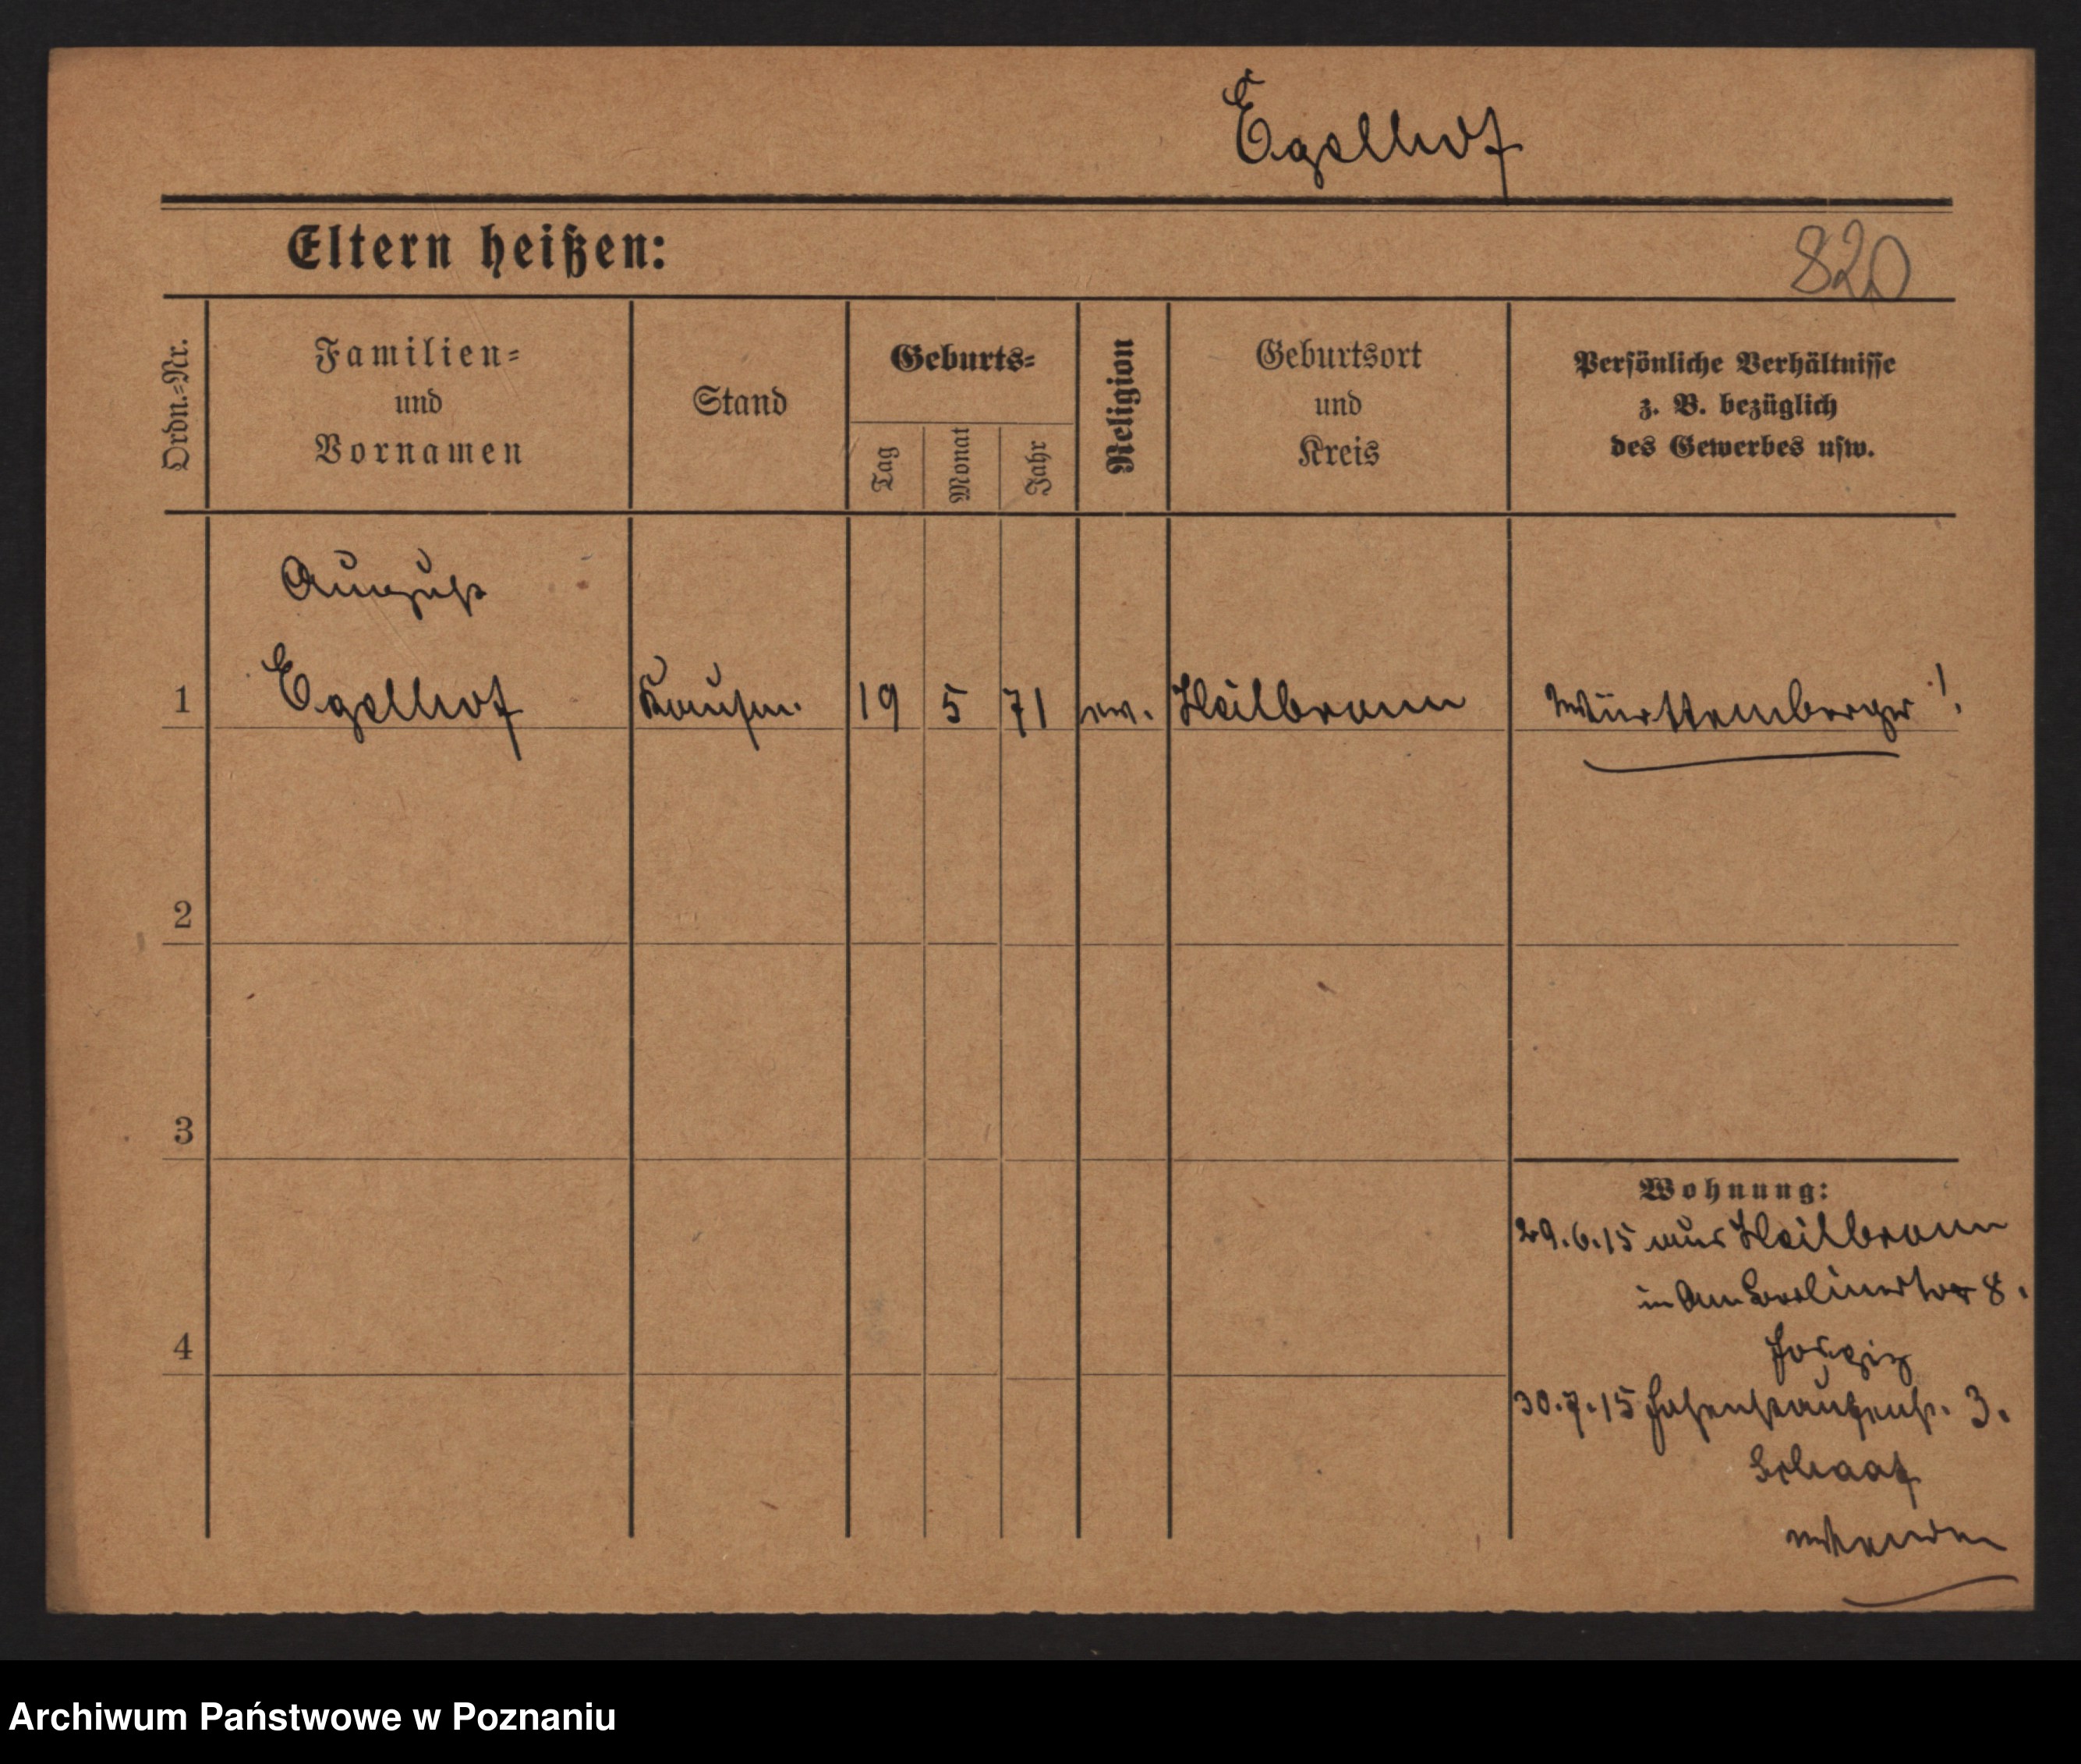 Egelhof
Eltern heißen:
820
Ordn.-Nr.
Familien-
und
Vornamen
Stand
Geburts-
Tag
Monat
Jahr
Religion
Geburtsort
und
Kreis
Persönliche Verhältnisse
z. B. bezüglich
des Gewerbes usw.
August
1 Egelhof Kaufm. 19 5 71 ev. Heilbronn Württemberger!
2
3
Wohnung:
29.6.15 aus Heilbronn
in Am Berlinertor 8.
4
30.7.15 Hohenstaufenstr. 3.
Schaaf
Archiwum Państwowe w Poznaniu